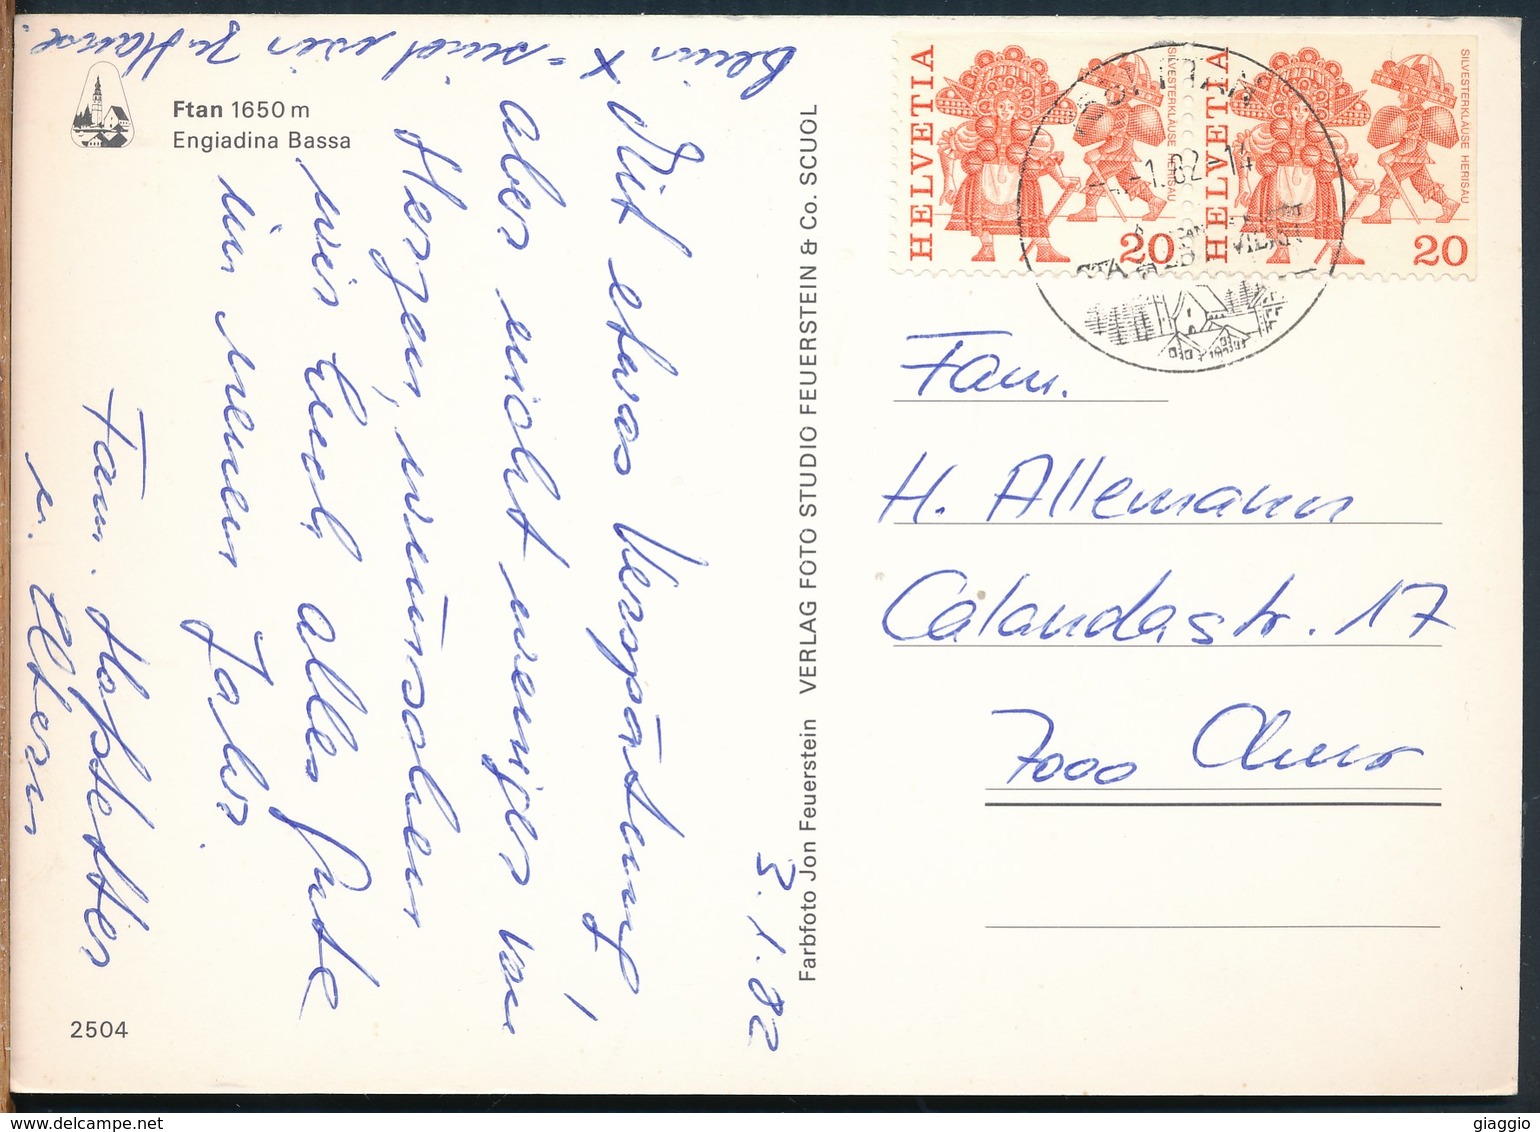 Ftan 1650 m
Engiadina Bassa
3.1.82
Mit etwas Verspätung,
aber nicht weniger von
Herzen, wünschen
wir Euch alles Gute
im neuen Jahr.
Fam. Hofstetter
u. Eltern
x = sind wir zu Hause.
2504
Farbfoto Jon Feuerstein VERLAG FOTO STUDIO FEUERSTEIN & Co. SCUOL
HELVETIA
SILVESTERKLÄUSE HERISAU
20
HELVETIA
SILVESTERKLÄUSE HERISAU
20
-1.82-14
Fam.
H. Allemann
Calandastr. 17
7000 Chur
giaggio